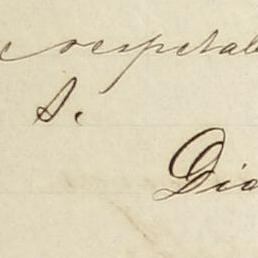 respetab
S.
Dio